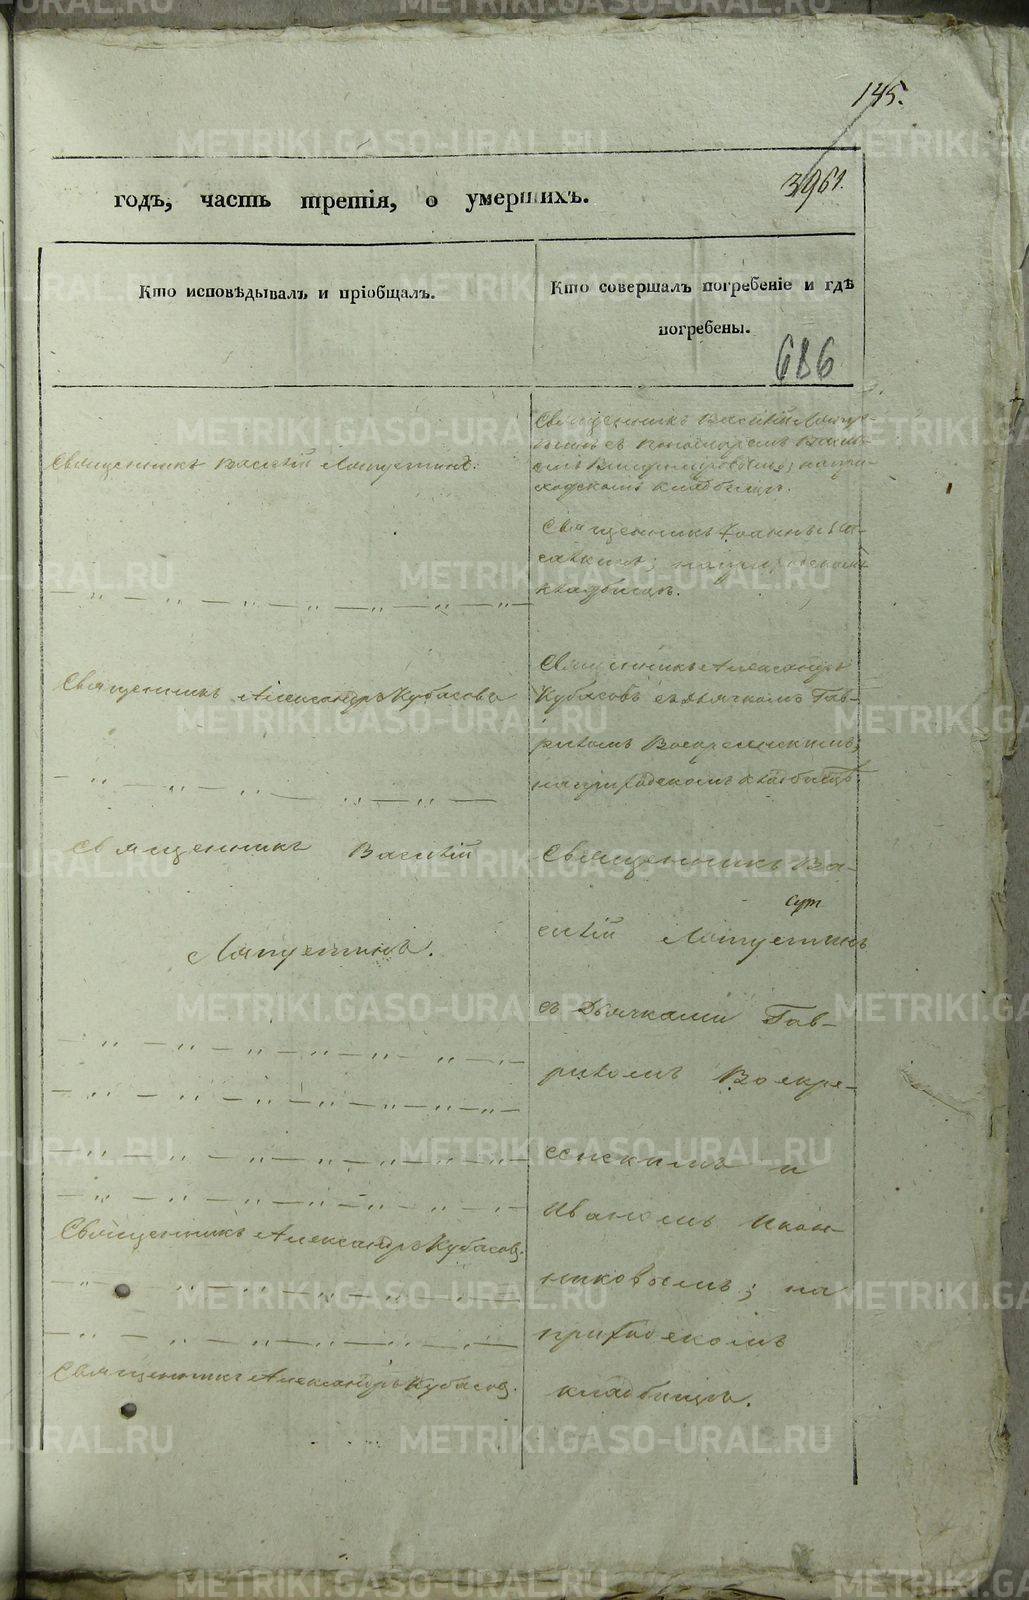 145.
3961.
годъ, часть третія, о умершихъ.
Кто исповѣдывалъ и пріобщалъ.
Кто совершалъ погребеніе и гдѣ
погребены.
686
Священникъ Василій Лапустинъ.
Священникъ Василій Лапу-
стинъ съ Пономаремъ Васи-
ліемъ; на при-
ходскомъ кладбищѣ.
Священникъ Іоаннъ
на приходскомъ
кладбищѣ.
Священникъ Александръ Кубасовъ
Священникъ Александръ
Кубасовъ съ дьячкомъ Гав-
риломъ Воскресенскимъ;
на приходскомъ кладбищѣ
Священникъ Василій
Лапустинъ.
Священникъ Ва-
сут
силій Лапустинъ
съ Дьячками Гав-
риломъ Воскре-
сенскимъ и
Иваномъ Икон-
никовымъ; на
приходскомъ
кладбищѣ.
Священникъ Александръ Кубасовъ.
Священникъ Александръ Кубасовъ.
METRIKI.GASO-URAL.RU